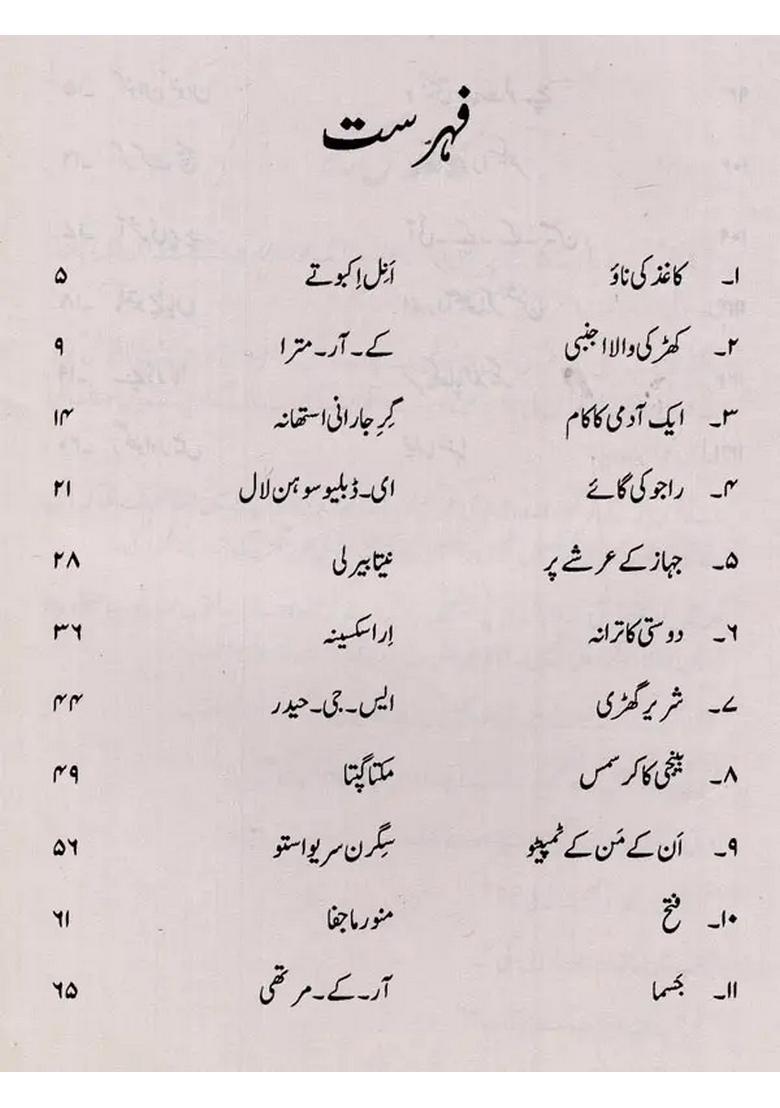 فہرست
۱۔ کاغذ کی ناؤ اَنِل اِکبوتے ۵
۲۔ کھڑکی والا اجنبی کے۔آر۔مترا ۹
۳۔ ایک آدمی کا کام گِرِجا رانی استھانہ ۱۴
۴۔ راجو کی گائے ای۔ڈبلیو سوہن لال ۲۱
۵۔ جہاز کے عرشے پر نیتا بیرلی ۲۸
۶۔ دوستی کا ترانہ اِرا سکسینہ ۳۶
۷۔ شریر گھڑی ایس۔جی۔حیدر ۴۴
۸۔ پینجی کا کرسمس مکتا گپتا ۴۹
۹۔ اَن کے مَن کے ٹمپیٹو سِگرن سریواستو ۵۶
۱۰۔ فتح منورما جفا ۶۱
۱۱۔ جَسما آر۔کے۔مرتھی ۶۵